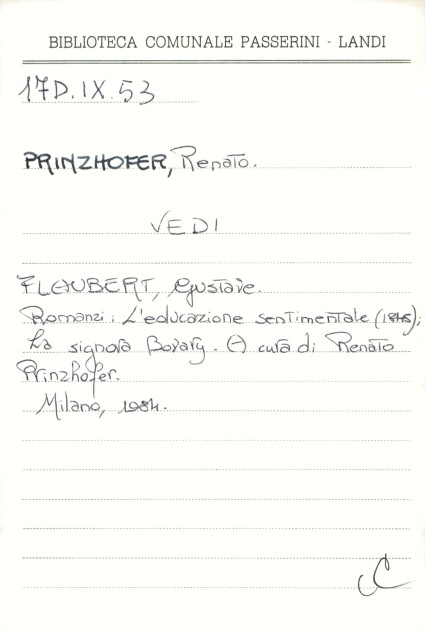 BIBLIOTECA COMUNALE PASSERINI - LANDI
17D.IX.53
PRINZHOFER, Renato.
VEDI
FLAUBERT, Gustave.
Romanzi: L'educazione sentimentale (1845);
La signora Bovary. A cura di Renato
Prinzhofer.
Milano, 1984.